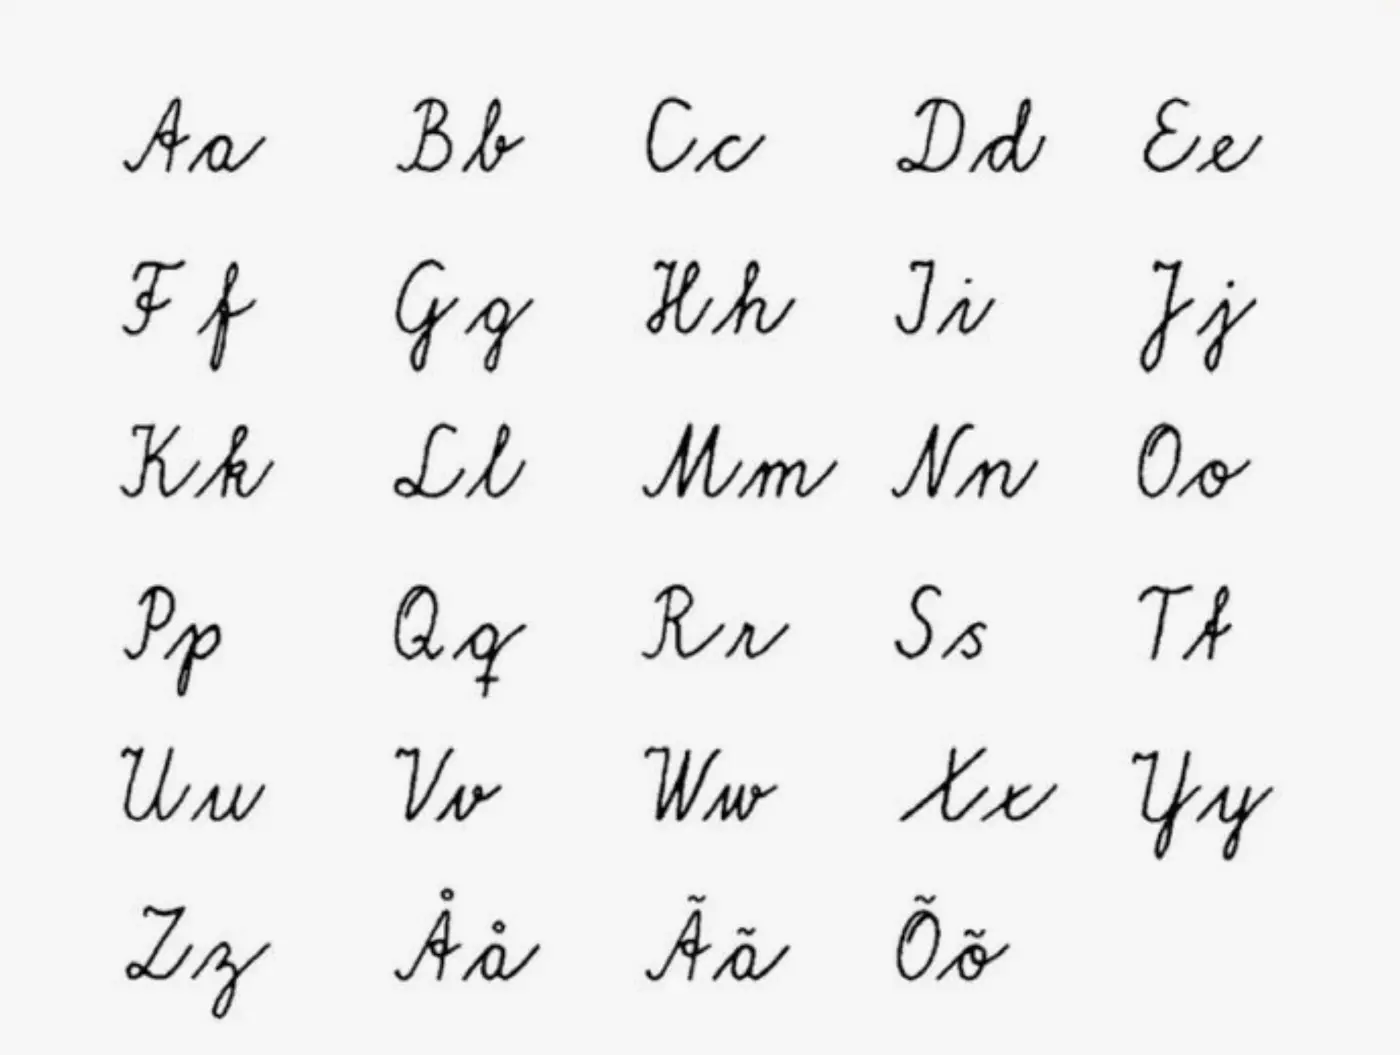 Aa Bb Cc Dd Ee
Ff Gg Hh Ii Jj
Kk Ll Mm Nn Oo
Pp Qq Rr Ss Tt
Uu Vv Ww Xx Yy
Zz Åå Ãã Õõ